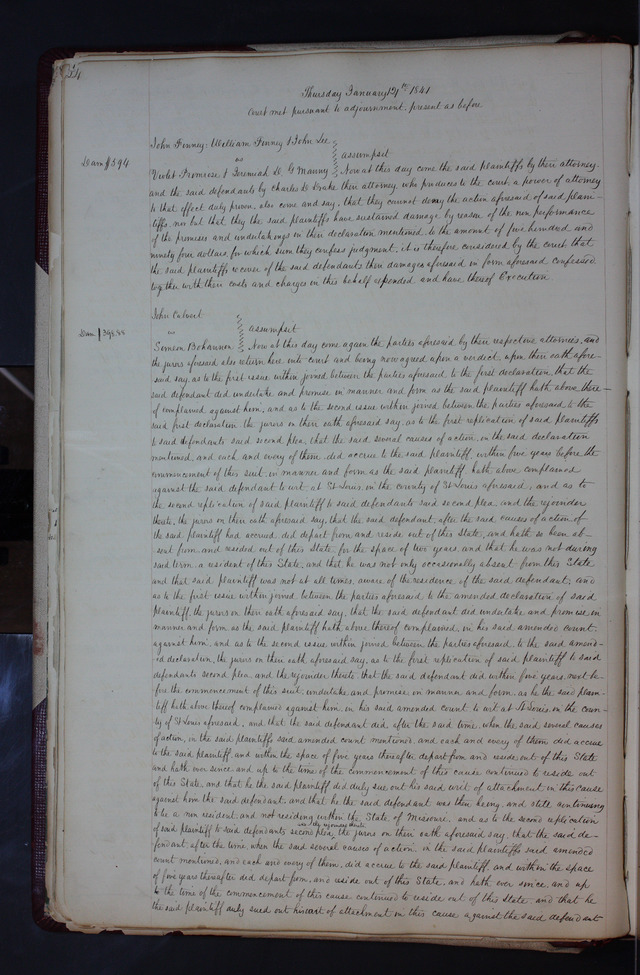 Thursday January 14th 1841
Court met pursuant to adjournment, present as before
John Finney, William Finney & John Lee
vs
assumpsit
Dam $594
Violet Promise & Jeremiah D. G Manny Now at this day come the said plaintiffs by their attorney
and the said defendants by Charles D Drake their attorney, who produces to the court a power of attorney
to that effect duly proven, also come and say, that they cannot deny the action aforesaid of said plain-
tiffs, nor but that they the said plaintiffs have sustained damage by reason of the non performance
of the promises and undertakings in their declaration mentioned, to the amount of five hundred and
ninety four dollars, for which sum they confess judgment, it is therefore considered by the court that
the said plaintiffs recover of the said defendants their damages aforesaid in form aforesaid confessed
together with their costs and charges in this behalf expended, and have thereof Execution
John Culvert
vs
assumpsit
Simeon Bohannon Now at this day come again the parties aforesaid by their respective attornies, and
the jurors aforesaid also return here into court and being now agreed upon a verdict, upon their oath afore-
said say, as to the first issue within joined between the parties aforesaid, to the first declaration, that the
said defendant did undertake and promise in manner and form as the said plaintiff hath above there-
of complained against him, and as to the second issue within joined between the parties aforesaid to the
said first declaration, the jurors on their oath aforesaid say, as to the first replication of said plaintiffs
to said defendants said second plea, that the said several causes of action, in the said declaration
mentioned, and each and every of them, did accrue to the said plaintiff, within five years before the
commencement of this suit, in manner and form as the said plaintiff, hath above complained
against the said defendant to wit at St Louis, in the county of St Louis aforesaid, and as to
the second replication of said plaintiff to said defendants said second plea, and the rejoinder
thereto, the jurors on their oath aforesaid say, that the said defendant, after the said causes of action of
the said plaintiff had accrued, did depart from and reside out of this State, and hath so been ab-
sent from and resided out of this State, for the space of two years, and that he was not during
said term, a resident of this State, and that he was not only occasionally absent from this State
and that said plaintiff was not at all times, aware of the residence, of the said defendant, and
as to the first issue within joined, between the parties aforesaid, to the amended declaration of said
plaintiff, the jurors on their oath aforesaid say, that the said defendant did undertake and promise, in
manner and form as the said plaintiff hath above thereof complained, in his said amended count
against him, and as to the second issue within joined between the parties aforesaid, to the said amend-
ed declaration, the jurors on their oath aforesaid say, as to the first replication of said plaintiff to said
defendants second plea, and the rejoinder thereto that the said defendant did within five years next be-
fore the commencement of this suit, undertake and promise in manner and form, as he the said plain-
tiff hath above thereof complained against him in his said amended count, to wit at St Louis, in the coun-
ty of St Louis aforesaid, and that the said defendant did, after the said time, when the said several causes
of action, in the said plaintiffs said amended count mentioned, and each and every of them did accrue
to the said plaintiff, and within the space of five years thereafter depart from and reside out of this State
and hath ever since and up to the time of the commencement of this cause continued to reside out
of this State, and that he the said plaintiff did duly sue out his said writ of attachment in this cause
against him the said defendant, and that he the said defendant was then being, and still continuing
to be a non resident, and not residing within the State of Missouri, and as to the second replication
and the rejoinder thereto
of said plaintiff to said defendants second plea, the jurors on their oath aforesaid say, that the said de-
fendant, after the time, when the said several causes of action, in the said plaintiffs said amended
count mentioned, and each and every of them, did accrue to the said plaintiff, and within the space
of five years thereafter did depart from, and reside out of this State, and hath ever since, and up
to the time of the commencement of this cause continued to reside out of this State, and that he
the said plaintiff duly sued out his writ of attachment in this cause against the said defendant